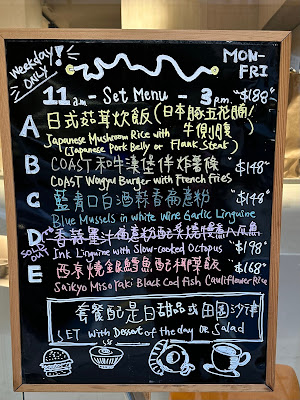 Weekday ONLY!
MON-FRI
11am - Set Menu - 3pm
A 日式菇茸炊飯(日本豚五花腩/牛側腹) "$188"
Japanese Mushroom Rice with
(Japanese Pork Belly or Flank Steak)
B COAST 和牛漢堡伴炸薯條 "$148"
COAST Wagyu Burger with French Fries
C 藍青口白酒蒜香扁意粉 "$148"
Blue Mussels in White Wine Garlic Linguine
D 香蒜墨汁扁意粉配燒慢煮八爪魚
SOLD OUT
Ink Linguine with Slow-cooked Octopus "$198"
E 西京燒銀鱈魚配椰菜飯 "$168"
Saikyo Misoyaki Black Cod Fish, Cauliflower Rice
套餐配是日甜品或田園沙律
SET with Dessert of the day OR Salad